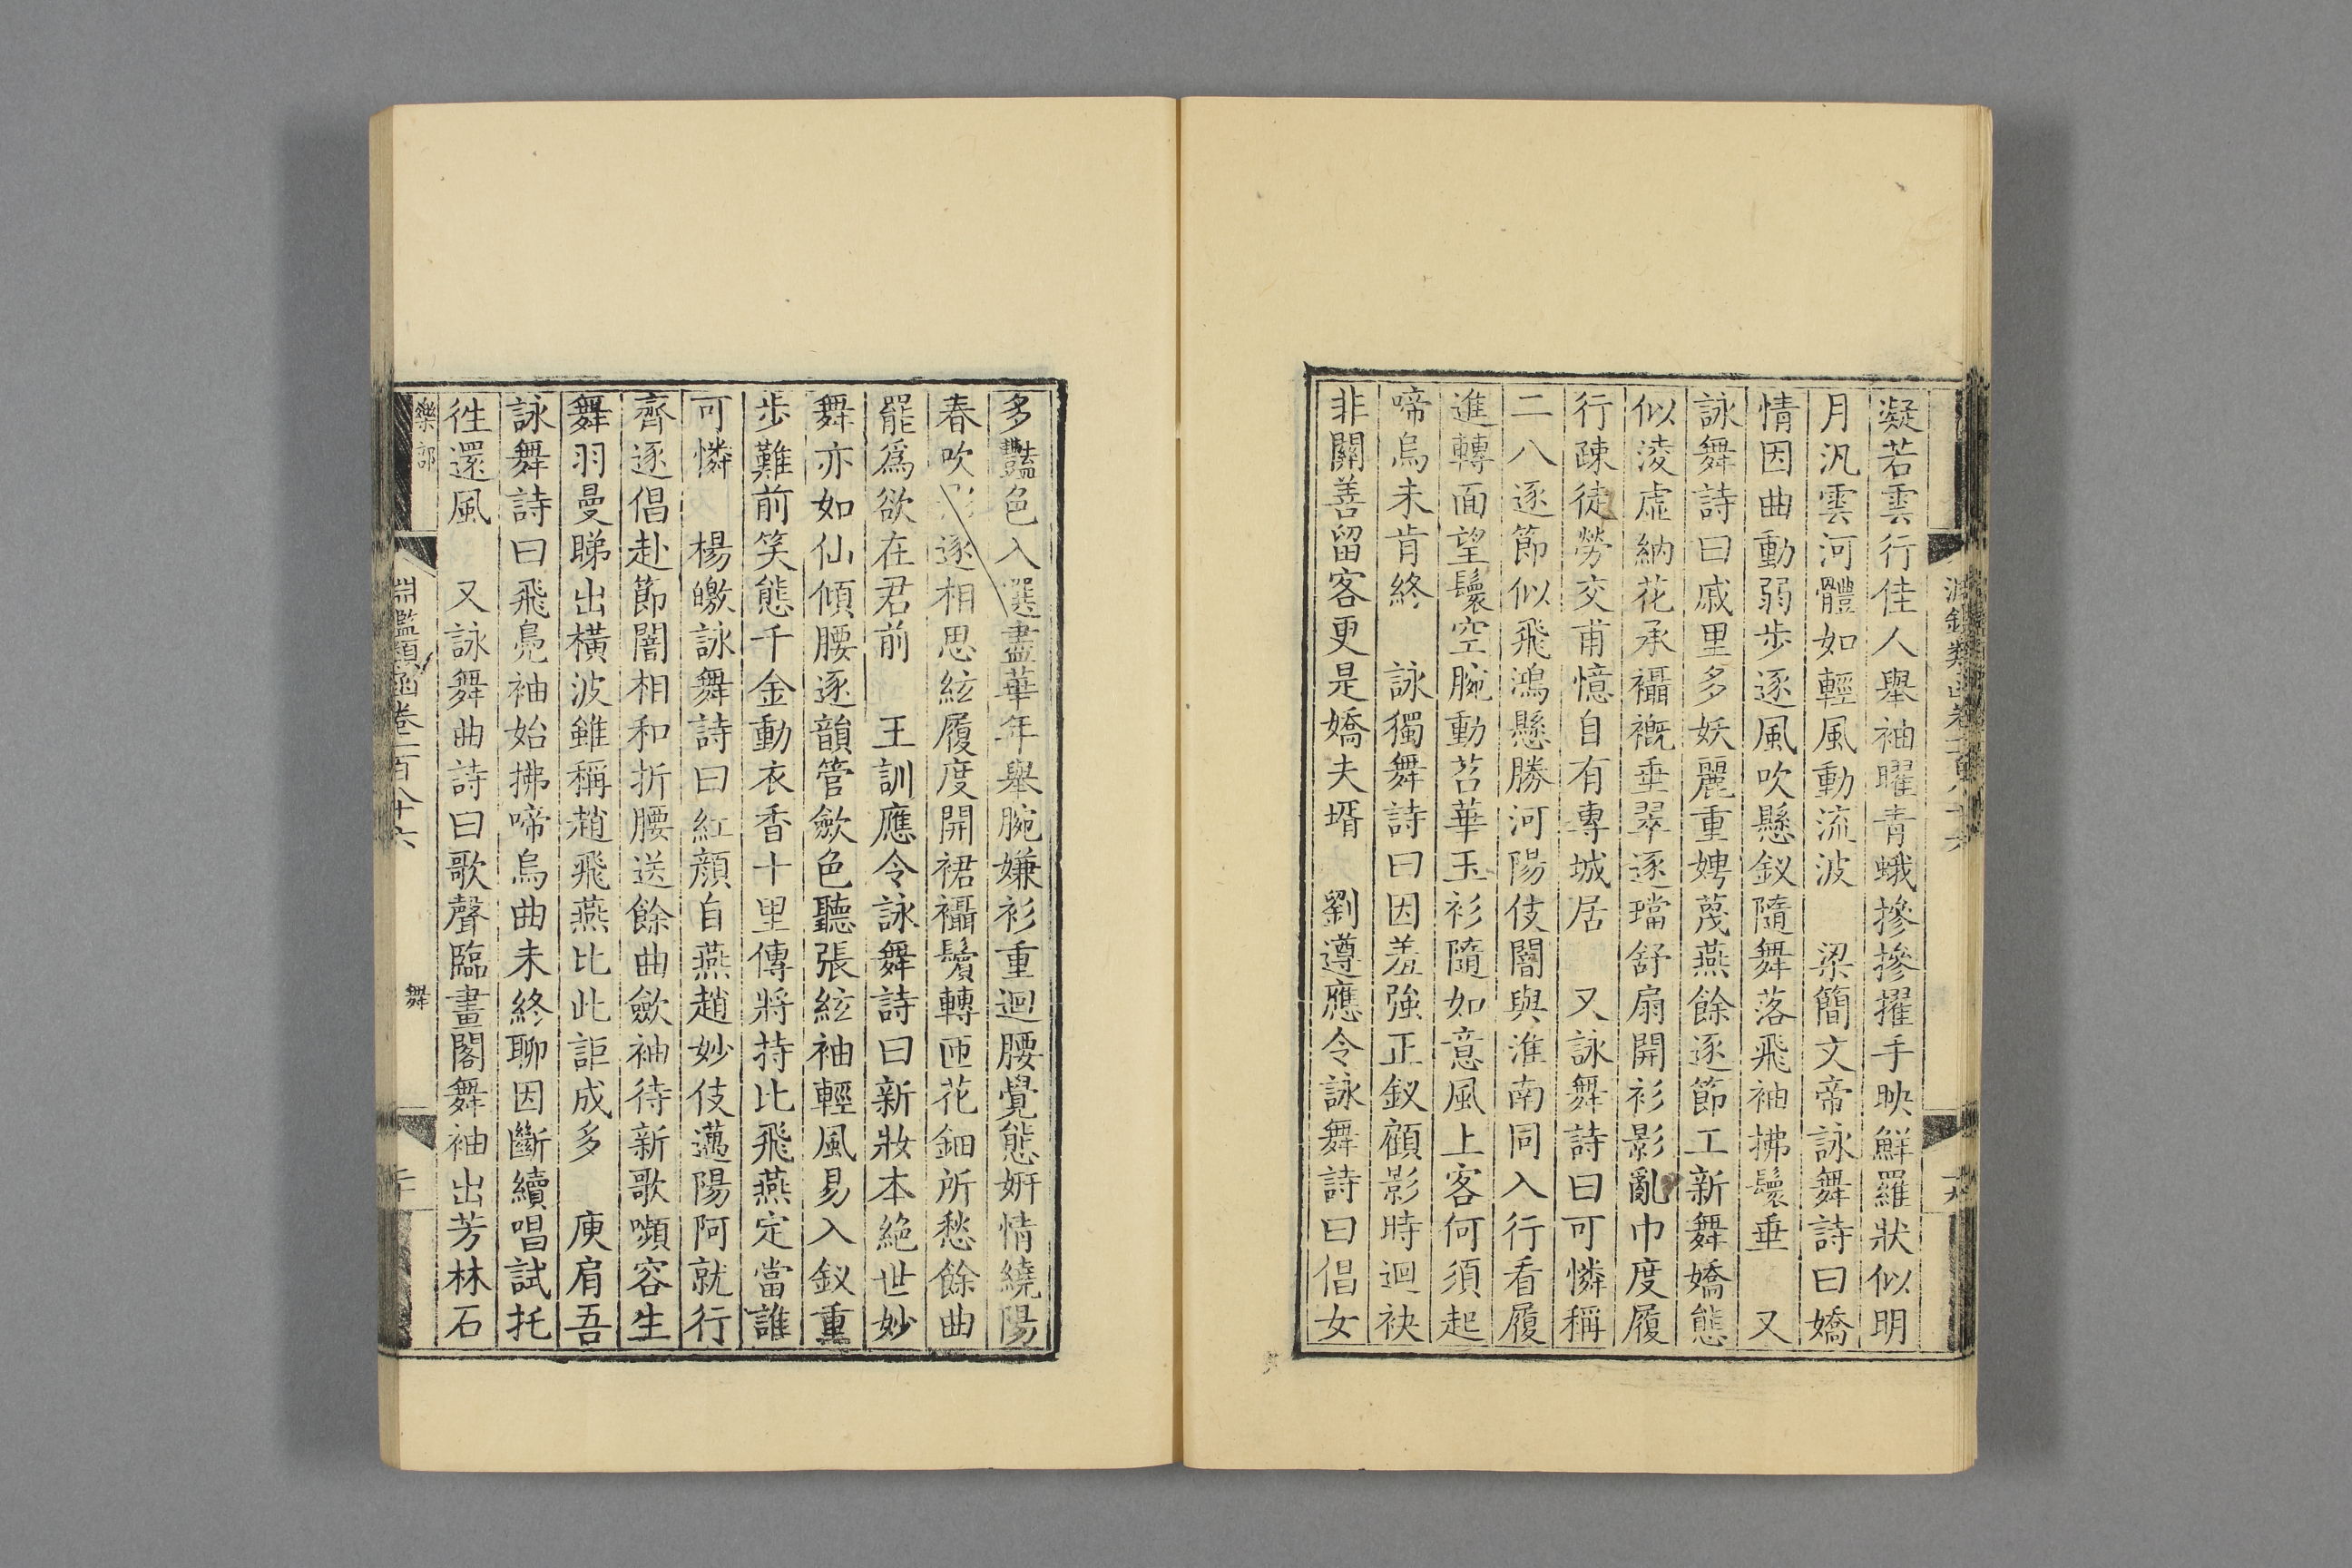 凝若雲行佳人舉袖曜青蛾摻摻擢手映鮮羅狀似明
月汎雲河體如輕風動流波　梁簡文帝詠舞詩曰嬌
情因曲動弱步逐風吹懸釵隨舞落飛袖拂鬟垂　又
詠舞詩曰戚里多妖麗重娉蔑燕餘逐節工新舞嬌態
似淩虛納花承襵襪垂翠逐璫舒扇開衫影亂巾度履
行疎徒勞交甫憶自有專城居　又詠舞詩曰可憐稱
二八逐節似飛鴻懸勝河陽伎闇與淮南同入行看履
進轉面望鬟空腕動苕華玉衫隨如意風上客何須起
啼烏未肯終　詠獨舞詩曰因羞強正釵顧影時迴袂
非關善留客更是嬌夫壻　劉遵應令詠舞詩曰倡女
多豔色入選盡華年舉腕嫌衫重迴腰覺態妍情繞陽
春吹影逐相思絃履度開裙襵鬢轉匝花鈿所愁餘曲
罷爲欲在君前　王訓應令詠舞詩曰新妝本絶世妙
舞亦如仙傾腰逐韻管斂色聽張絃袖輕風易入釵重
步難前笑態千金動衣香十里傳將持比飛燕定當誰
可憐　楊皦詠舞詩曰紅顔自燕趙妙伎邁陽阿就行
齊逐倡赴節闇相和折腰送餘曲斂袖待新歌嚬容生
舞羽曼睇出橫波雖稱趙飛燕比此詎成多　庾肩吾
詠舞詩曰飛鳧袖始拂啼烏曲未終聊因斷續唱試托
徃還風　又詠舞曲詩曰歌聲臨畫閣舞袖出芳林石
樂部　淵鑑類函卷一百八十六　舞